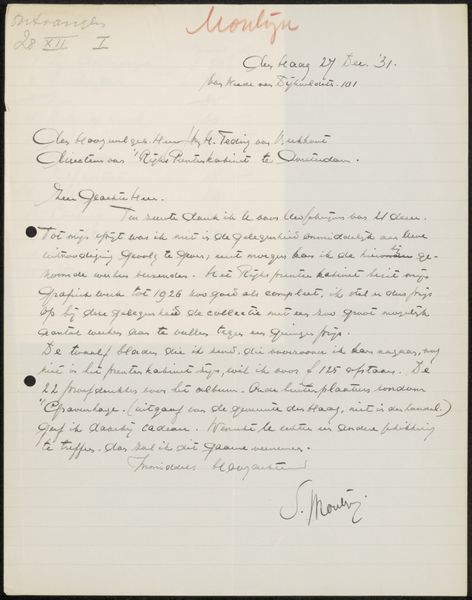 ontvangen
28 XII I
Moulijn
den Haag 27 Dec. '31.
van 101
Den Hoogwelgeb. Heer H. Teding van Berkhout
Directeur van 's Rijks Prentenkabinet te Amsterdam.
Zeer Geachte Heer.
Ten zeerste dank ik U voor Uw schrijven van 21 dezer.
Tot mijn spijt was ik niet in de gelegenheid onmiddellijk aan Uwe
uitnoodiging gevolg te geven; eerst morgen kan ik de hierin ge-
noemde werken verzenden. Het Rijksprentenkabinet bezit mijn
grafisch werk tot 1926 zoo goed als compleet, ik stel er dus prijs
op bij deze gelegenheid de collectie met een zoo groot mogelijk
aantal werken aan te vullen tegen een geringe prijs.
De twaalf bladen die ik zend, die voorzoover ik kan nagaan, nog
niet in het prentenkabinet zijn, wil ik voor f 125 afstaan. De
22 proefdrukken voor het album "Oude buitenplaatsen rondom
's Gravenhage" (uitgaaf van de gemeente den Haag, niet in den handel)
geef ik daarbij cadeau. Wenscht U echter een andere schikking
te treffen, dan zal ik dit gaarne vernemen.
Inmiddels hoogachtend
S. Moulijn.